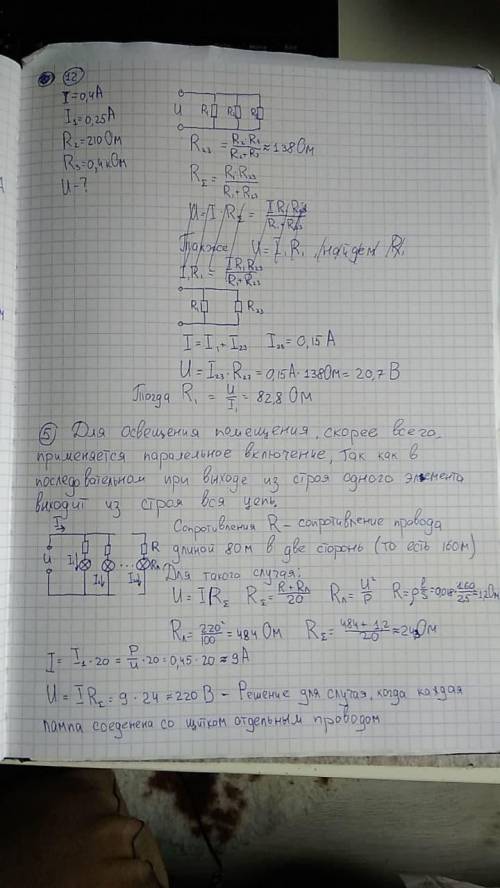 12
I = 0,4A
I₁ = 0,25A
R₂ = 210 Ом
R₃ = 0,4 кОм
U - ?
U R₁ R₂ R₃
R₂₃ = R₂·R₃ / R₂+R₃ ≈ 138 Ом
R_Σ = R₁·R₂₃ / R₁+R₂₃
U = I·R_Σ = I R₁ R₂₃ / R₁+R₂₃
Также U = I₁R₁, найдем R₁
I₁R₁ = I R₁R₂₃ / R₁+R₂₃
R₁ R₂₃
I = I₁ + I₂₃ I₂₃ = 0,15 A
U = I₂₃·R₂₃ = 0,15A·138Ом = 20,7 В
Тогда R₁ = U / I₁ = 82,8 Ом
5 Для освещения помещения, скорее всего,
применяется паралельное включение, так как в
последовательном при выходе из строя одного элемента
выходит из строя вся цепь.
I U I₁ R Rл
Сопротивления R - сопротивление провода
длиной 80м в две стороны (то есть 160м)
Для такого случая:
U = I R_Σ R_Σ = R + Rл / 20 Rл = U² / P R = ρ l/S = 160 / 25 = 1,2 Ом
Rл = 220² / 100 = 484 Ом R_Σ = 484 + 1,2 / 20 ≈ 24 Ом
I = I₁·20 = P / U · 20 = 0,45·20 ≈ 9A
U = I R_Σ = 9·24 ≈ 220 В - Решение для случая, когда каждая
лампа соеденена со щитком отдельным проводом